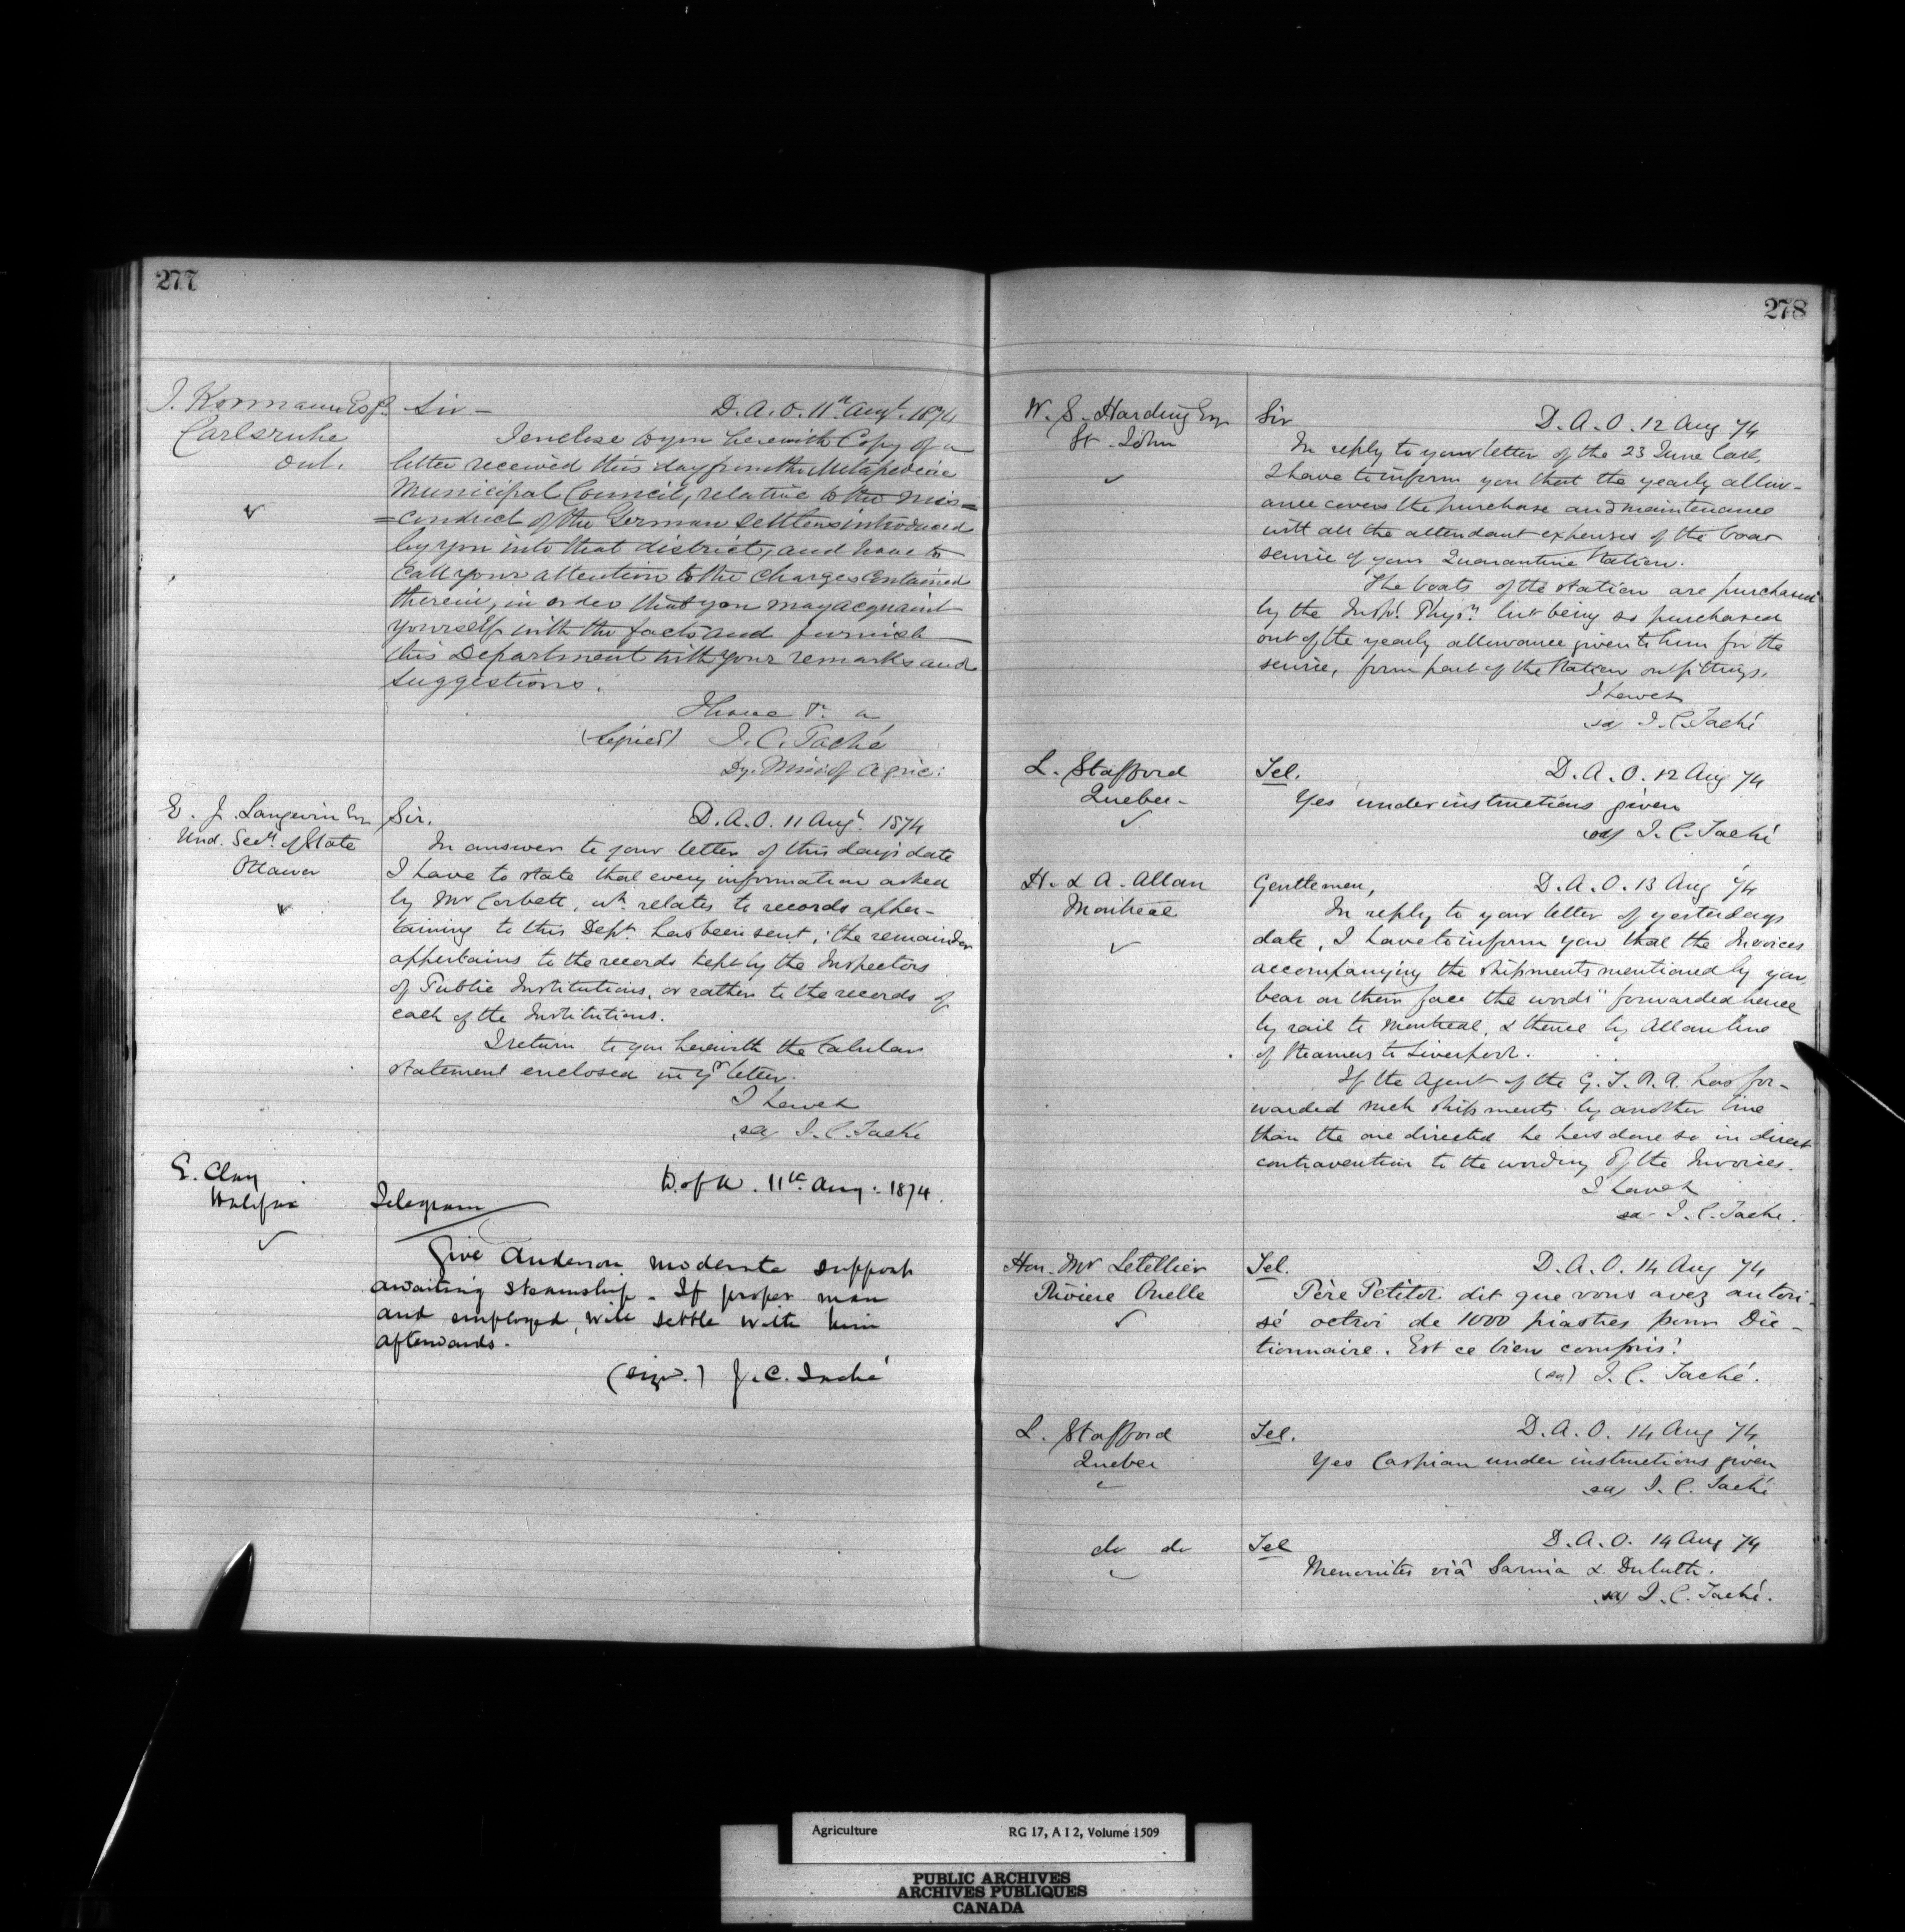 277
J. Kormann Esq.
Carlsruhe
Ont.
Sir - D. A. O. 11th Augt. 1874
I enclose to you herewith Copy of a
letter received this day from the Metapediac
Municipal Council, relative to the mis=
=conduct of the German Settlers introduced
by you into that district, and have to
call your attention to the charges contained
therein, in order that you may acquaint
yourself with the facts and furnish
this Department with your remarks and
suggestions.
I have &c.
(Signed) J. C. Taché
Dy. Min. of Agric:
E. J. Langevin Esq
Und. Secy. of State
Ottawa
Sir. D. A. O. 11 Augt. 1874
In answer to your letter of this day's date
I have to state that every information asked
by Mr Corbett, wh. relates to records apper-
taining to this Dept. has been sent; the remainder
appertains to the records kept by the Inspectors
of Public Institutions, or rather to the records of
each of the Institutions.
I return to you herewith the tabular
statement enclosed in yr letter.
I have &
sd J. C. Taché
E. Clay
Halifax
D. of A. 11th Aug: 1874.
Telegram
Give Anderson moderate support
awaiting steamship. If proper man
and employed, will settle with him
afterwards.
(sigd.) J. C. Taché
278
W. S. Harding Esq
St. John
Sir D. A. O. 12 Aug 74
In reply to your letter of the 23 June last,
I have to inform you that the yearly allow-
ance covers the purchase and maintenance
with all the attendant expenses of the boat
service of your Quarantine Station.
The boats of the station are purchased
by the Insp. Physn. but being so purchased
out of the yearly allowance given to him for the
service, form part of the Station outfittings.
I have &
sd J. C. Taché
L. Stafford
Quebec -
Tel. D. A. O. 12 Aug 74
Yes under instructions given
sd J. C. Taché
H. & A. Allan
Montreal
Gentlemen, D. A. O. 13 Aug 74
In reply to your letter of yesterday's
date, I have to inform you that the Invoices
accompanying the shipments mentioned by you,
bear on their face the words "forwarded hence
by rail to Montreal, & thence by Allan line
of steamers to Liverpool.
If the Agent of the G. T. R. R. has for-
warded such shipments by another line
than the one directed he has done so in direct
contravention to the wording of the Invoices.
I have &
sd J. C. Taché.
Hon. Mr Letellier
Rivière Ouelle
Tel. D. A. O. 14 Aug 74
Père Petitot dit que vous avez autori-
sé octroi de 1000 piastres pour Dic-
tionnaire. Est ce bien compris?
(sd) J. C. Taché.
L. Stafford
Quebec
Tel. D. A. O. 14 Aug 74
Yes Caspian under instructions given
sd J. C. Taché
do do
Tel D. A. O. 14 Aug 74
Menonites viâ Sarnia & Duluth.
sd J. C. Taché.
Agriculture RG 17, A I 2, Volume 1509
PUBLIC ARCHIVES
ARCHIVES PUBLIQUES
CANADA